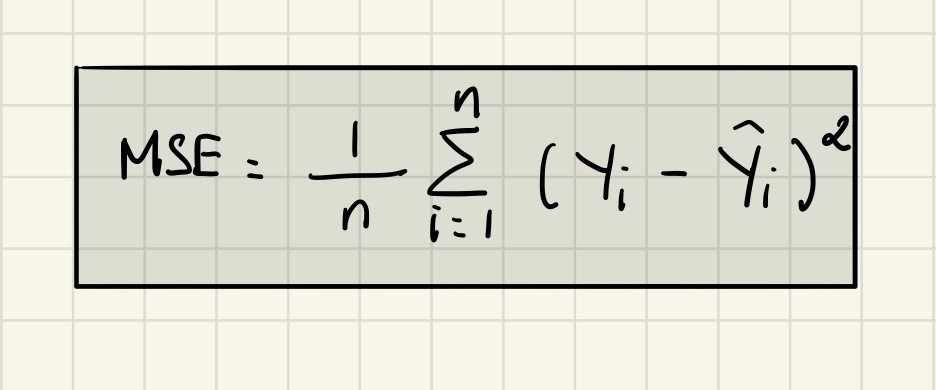 MSE = \frac{1}{n} \sum_{i=1}^{n} (Y_i - \hat{Y}_i)^2